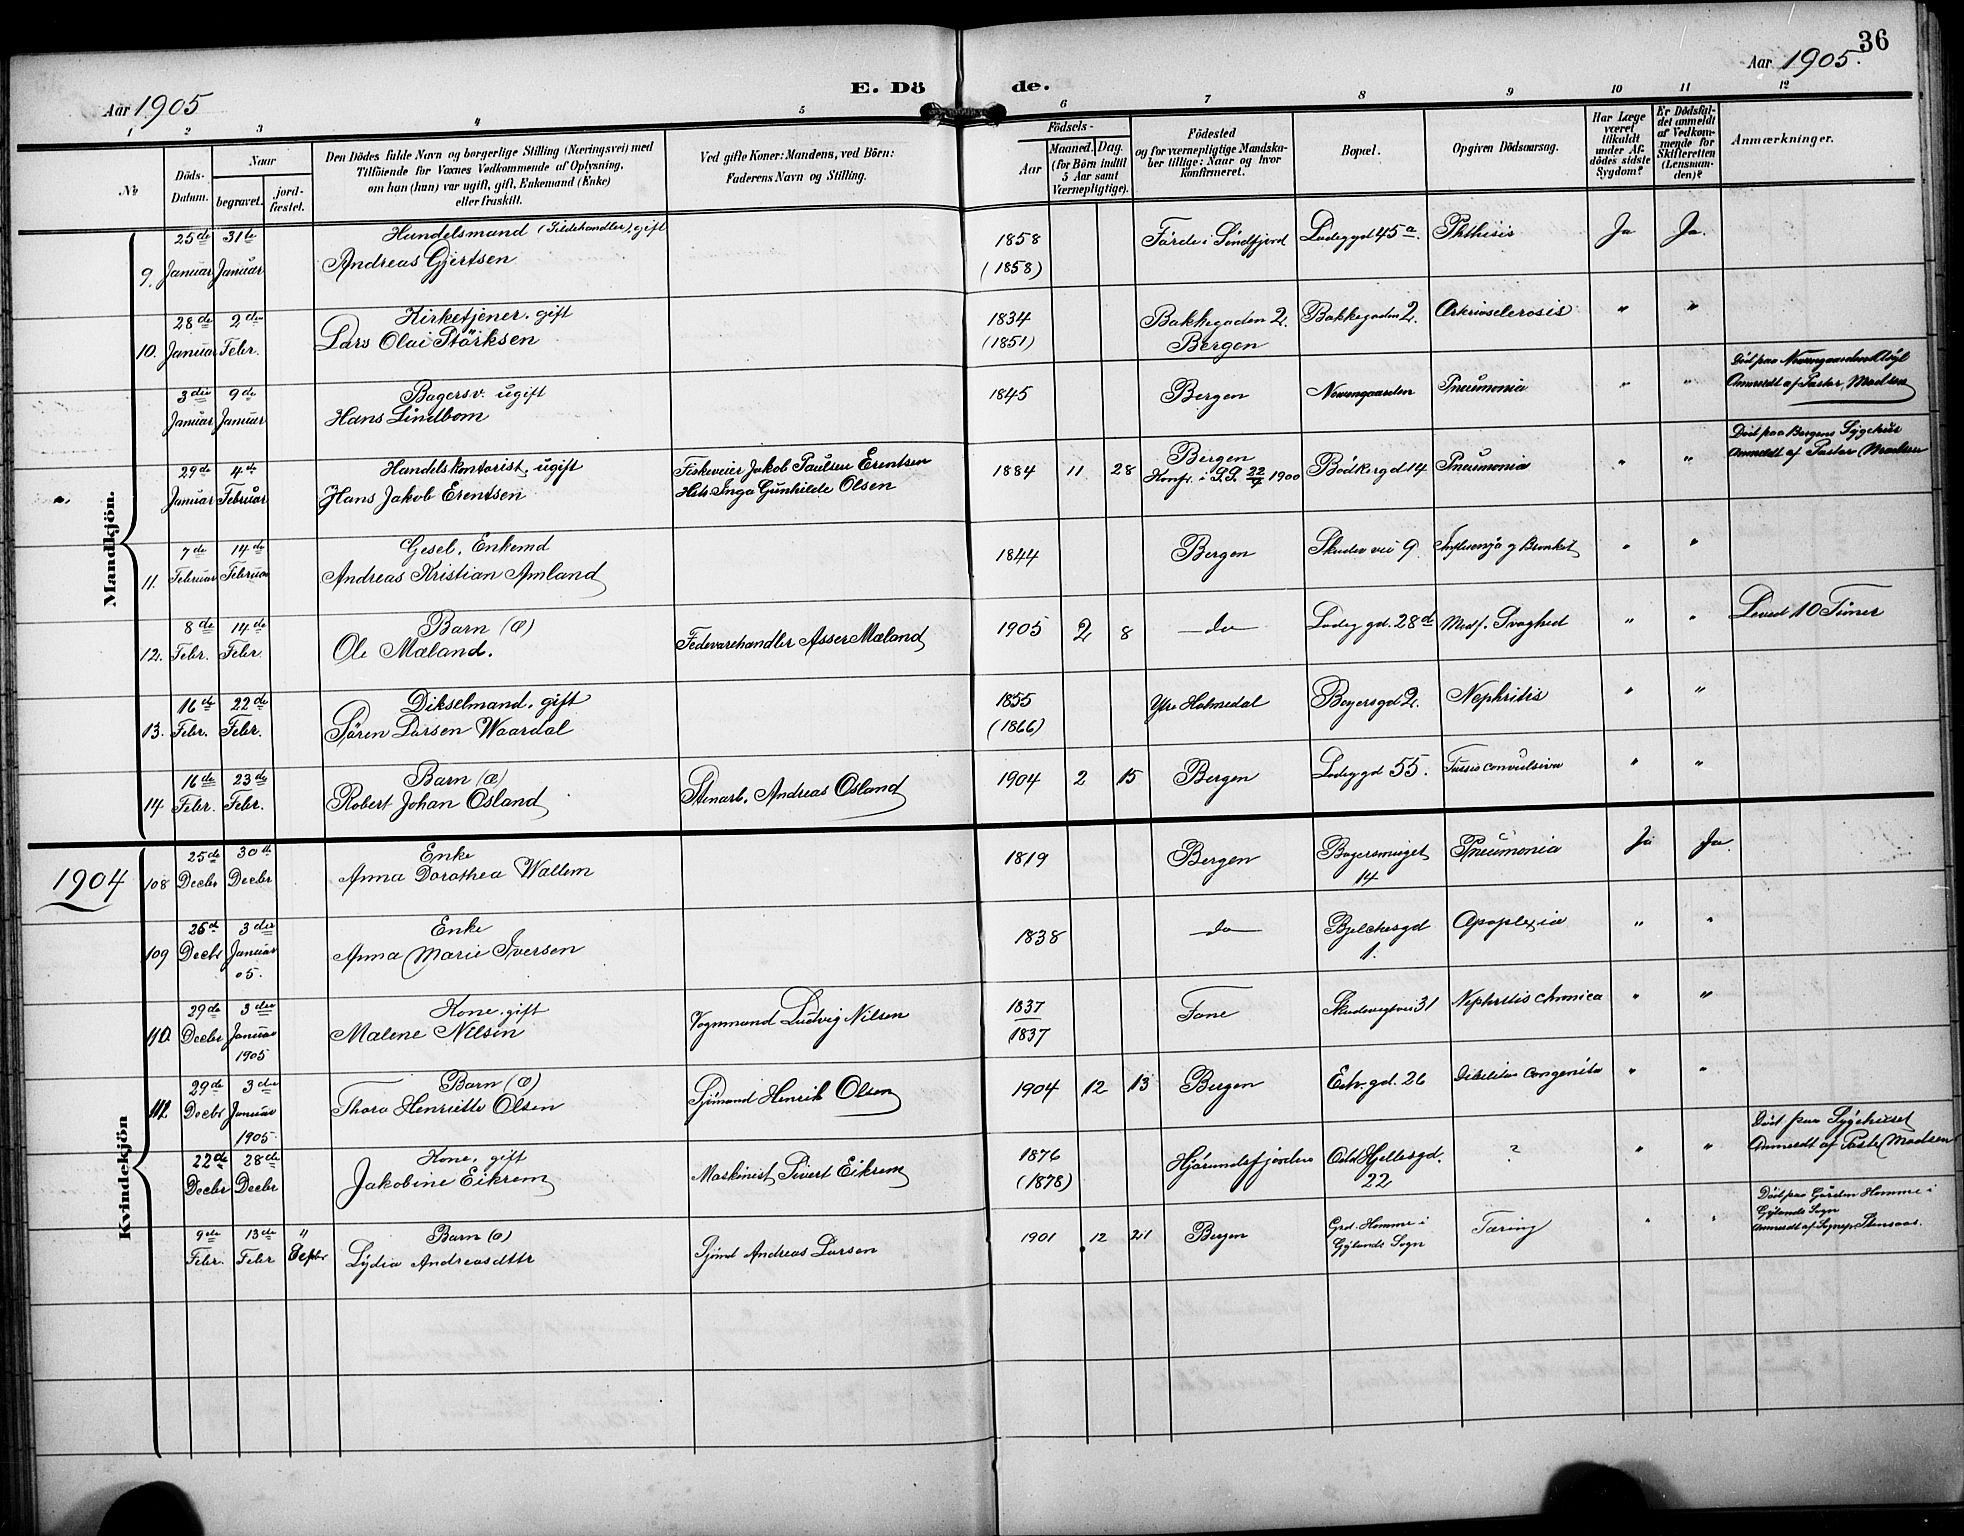 36
Aar 1905
E. Dö de.
Aar 1905.
1 2 3 4 5 6 7 8 9 10 11 12
No
Döds-Datum.
Naar
begravet.
jord-fæstet.
Den Dödes fulde Navn og borgerlige Stilling (Næringsvei) med
Tilföiende for Voxnes Vedkommende af Oplysning,
om han (hun) var ugift, gift, Enkemand (Enke)
eller fraskilt.
Ved gifte Koner: Mandens, ved Börn:
Faderens Navn og Stilling.
Födsels-
Aar
Maaned. Dag.
(for Börn indtil
5 Aar samt
Værnepligtige).
Födested
og for værnepligtige Mandska-
ber tillige: Naar og hvor
konfirmeret.
Bopæl.
Opgiven Dödsaarsag.
Har Læge
været
tilkaldt
under Af-
dödes sidste
Sygdom?
Er Dödsfal-
det anmeldt
af Vedkom-
mende for
Skifteretten
(Lensman-
den)?
Anmærkninger.
Mandkjön.
9. 25de Januar 31te Januar Handelsmand (Sildehandler), gift
Andreas Gjertsen 1858 (1858) Förde i Söndfjord Ladegd 45a. Phthisis Ja Ja.
10. 28de Januar 2den Febr. Kirketjener, gift
Lars Olai Störksen 1834 (1851) Bakkegaden 2. Bergen Bakkegaden 2. Arteriosclerosis " "
3die Januar 9de Januar Bagersv. ugift
Hans Lindbom 1845 Bergen Neevengaarden Pneumonia " " Död paa Neevengaarden Asyl
Anmeldt af Pastor Madsen
29de Januar 4de Februar Handelskontorist, ugift
Hans Jakob Erentsen Fiskeveier Jakob Paulsen Erentsen
Hst. Inga Gunhilde Olsen 1884 11 28 Bergen
Konf. i 22/4 1900 Bödkergd 14 Pneumonia " " Död paa Bergens Sygehus
Anmeldt af Pastor Madsen
11. 7de Februar 14de Februar Gesel, Enkemd
Andreas Kristian Amland 1844 Bergen Skudevvei 9. Influenza og Bronkit " "
12. 8de Febr. 14de Febr. Barn (Æ)
Ole Mæland. Fedevarehandler Asser Mæland 1905 2 8 — do — Ladeggd. 28d Medf. Svaghed " " Levet 10 Timer
13. 16de Febr. 22de Febr. Dikselmand, gift
Sören Larsen Waardal 1855 (1866) Ytre Holmedal Beyersgd 2. Nephritis " "
14. 16de Febr. 23de Febr. Barn (æ)
Robert Johan Osland Stenarb. Andreas Osland 1904 2 15 Bergen Ladeggd 55. Tussis convulsiva " "
1904
Kvindekjön
108 25de Decbr 30te Decbr Enke
Anna Dorothea Wallem 1819 Bergen Bagersmuget 14 Pneumonia Ja Ja
109 26d Decbr 3die Januar 05. Enke
Anna Marie Iversen 1838 — do — Bjelchesgd 1. Apoplexia " "
110. 29de Decbr 3die Januar 1905 Kone, gift
Malene Nilsen Vognmand Ludvig Nilsen 1837 1837 Fane Skudevigsvei 31 Nephritis chronica " "
112. 29de Decbr 3die Januar 1905. Barn (Æ)
Thora Henriette Olsen Sjömand Henrik Olsen 1904 12 13 Bergen Edv. gd. 26 Dibelitas congenita " "
22de Decbr 28de Decbr Kone, gift
Jakobine Eikrem Maskinist Sivert Eikrem 1876 (1878) Hjörundsfjorden Hellesgd. 22 ? " " Död paa Sygehuset
Anmeldt af Pastor Madsen
9de Febr. 13de Febr " Barn (Æ)
Lydia Andreasdttr Sjömd Andreas Larsen 1901 12 21 Bergen Grd. Homme i
Gylands Sogn Tæring " " Död paa Gården Homme i
Gylands Sogn
Anmeldt af Sognepr. Stensaas.